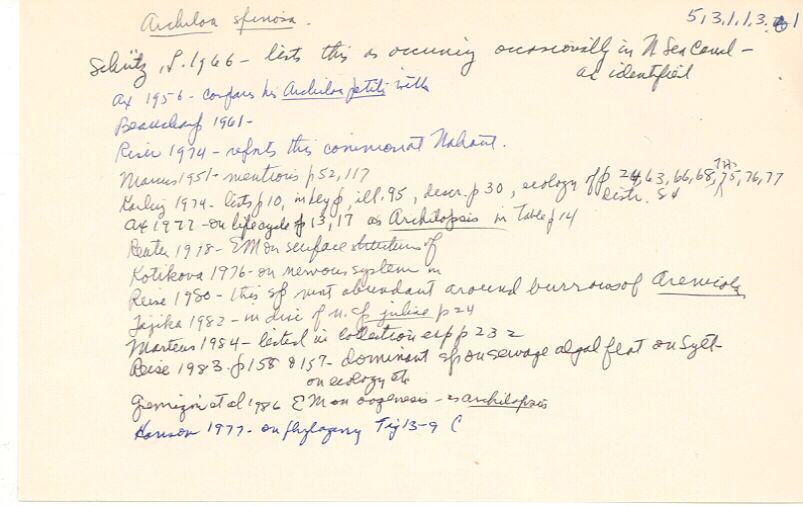 Archiloa spinosa.
5,3.1.1.3. 1
Schütz, L. 1966 - lists this as occuring occasionally in N Sea Canal -
as identified
Ax 1956 - compares his Archiloa petiti with
Beauchamp 1961 -
Riser 1974 - reports this common at Nahant.
Marcus 1951 - mentions p 52, 117
Karling 1974 - lists p 10, in key p, ill. 95, descr. p 30, ecology of p 24, 63, 66, 68, 75, 76, 77
distr. 84
Ax 1977 - on life cycle p 13, 17 as Archilopsis in Table p 14
Reuter 1978 - EM on surface structures of
Kotikova 1976 - on nervous system in
Reise 1980 - this sp most abundant around burrows of Arenicola
Tajika 1982 - in disc of n. sp p 24
Martens 1984 - listed in collection p 232
Reise 1983. p 158 157 - dominant sp on sewage algal flat on Sylt -
on ecology etc
et al 1986 EM on oogenesis - as archilopsis
1977 - on phylogeny Fig 13-9 C